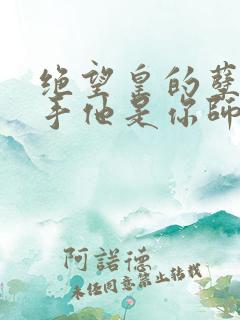 绝望皇的孽
手他是你師
阿諾德
未经同意禁止转载